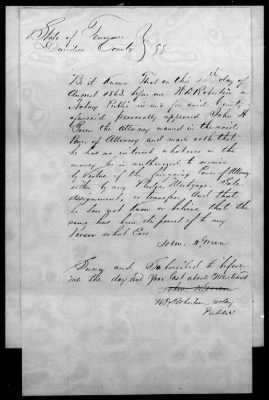 State of Tennessee
Davidson County } SS.
Be it known that on this day of
August 1863, before me W D Robertson a
Notary Public in and for said County
aforesaid, personally appeared John H
the Attorney named in the said
Power of Attorney and made oath that
he has no interest whatever in the
money he is authorized to receive
by virtue of the foregoing Power of Attorney
either by any Pledge, Mortgage, Sale
assignment, or transfer, and that
he does not know or believe that the
same has been disposed of to any
Person what Ever
John
Sworn and Subscribed to before
me the day and year last above Mentioned
W D Robertson Notary
Public